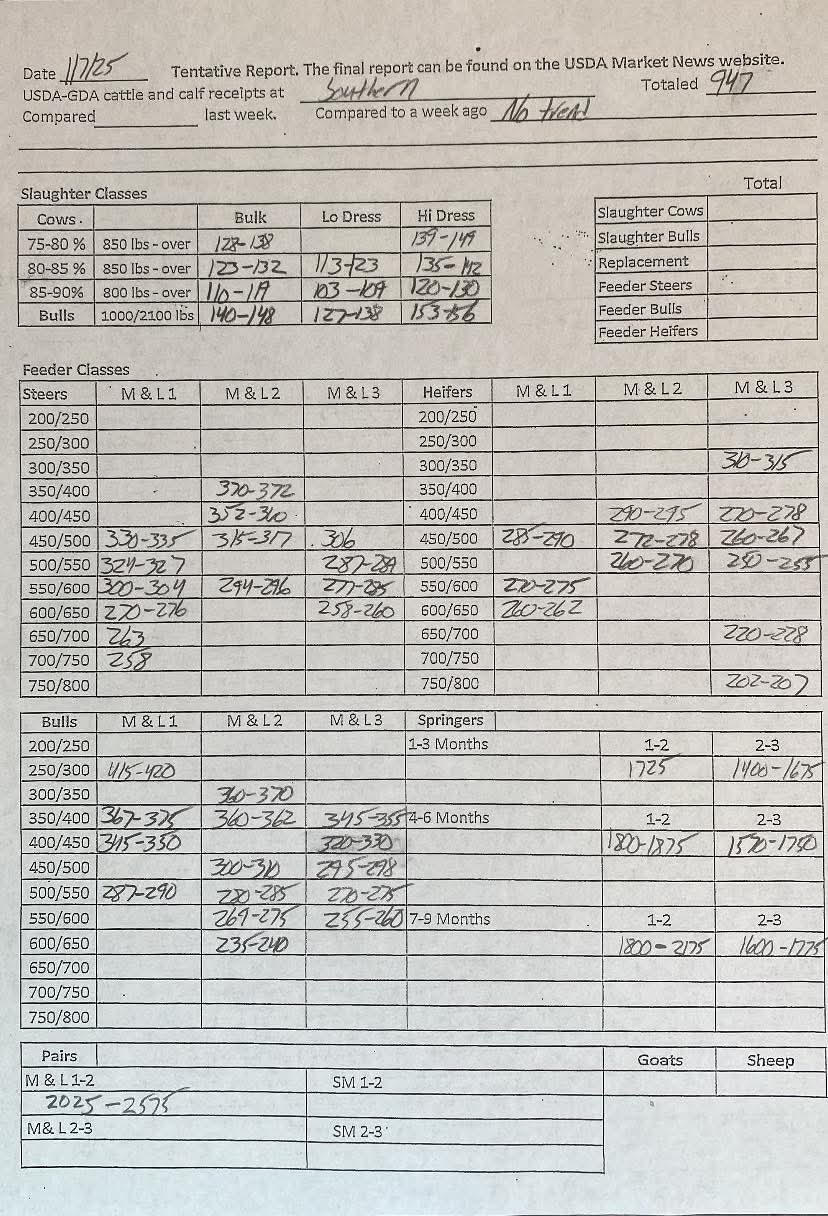 Date 1/7/25 Tentative Report. The final report can be found on the USDA Market News website.
USDA-GDA cattle and calf receipts at Southern Totaled 947
Compared last week. Compared to a week ago No trend
Total
Slaughter Classes
Cows. Bulk Lo Dress Hi Dress
75-80 % 850 lbs - over 128-138 139-149
80-85 % 850 lbs - over 123-132 113-123 135-142
85-90% 800 lbs - over 110-119 103-109 120-130
Bulls 1000/2100 lbs 140-148 127-138 153-156
Slaughter Cows
Slaughter Bulls
Replacement
Feeder Steers
Feeder Bulls
Feeder Heifers
Feeder Classes
Steers M & L 1 M & L 2 M & L 3 Heifers M & L 1 M & L 2 M & L 3
200/250 200/250
250/300 250/300
300/350 300/350 310-315
350/400 370-372 350/400
400/450 352-360 400/450 290-295 270-278
450/500 330-335 315-317 306 450/500 285-290 272-278 260-267
500/550 324-327 287-289 500/550 260-270 250-255
550/600 300-304 294-296 277-285 550/600 270-275
600/650 270-276 258-260 600/650 260-262
650/700 263 650/700 220-228
700/750 258 700/750
750/800 750/800 202-207
Bulls M & L 1 M & L 2 M & L 3 Springers
200/250 1-3 Months 1-2 2-3
250/300 415-420 1725 1400-1675
300/350 360-370
350/400 367-375 360-362 345-355 4-6 Months 1-2 2-3
400/450 345-350 320-330 1800-1875 1570-1750
450/500 300-310 295-298
500/550 287-290 280-285 270-275
550/600 269-275 255-260 7-9 Months 1-2 2-3
600/650 235-240 1800-2175 1600-1775
650/700
700/750
750/800
Pairs Goats Sheep
M & L 1-2 SM 1-2
2025-2575
M& L 2-3 SM 2-3